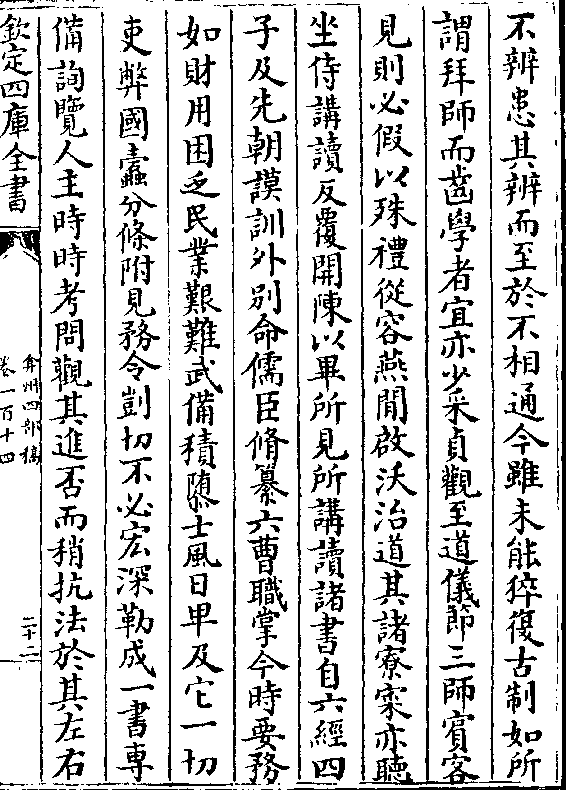 不辨患其辨而至於不相通今雖未能猝復古制如所
謂拜師而齒學者宜亦少采貞觀至道儀節三師賓客
見則必假以殊禮從容燕閒啟沃治道其諸寮寀亦聽
坐侍講讀反覆開陳以畢所見所講讀諸書自六經四
子及先朝謨訓外别命儒臣脩纂六曹職掌今時要務
如財用困乏民業艱難武備積隳士風日卑及它一切
吏弊國蠧分條附見務令剴切不必宏深勒成一書專
備詢覽人主時時考問觀其進否而稍抗法於其左右
欽定四庫全書
弇州四部稿
卷一百十四
二十二